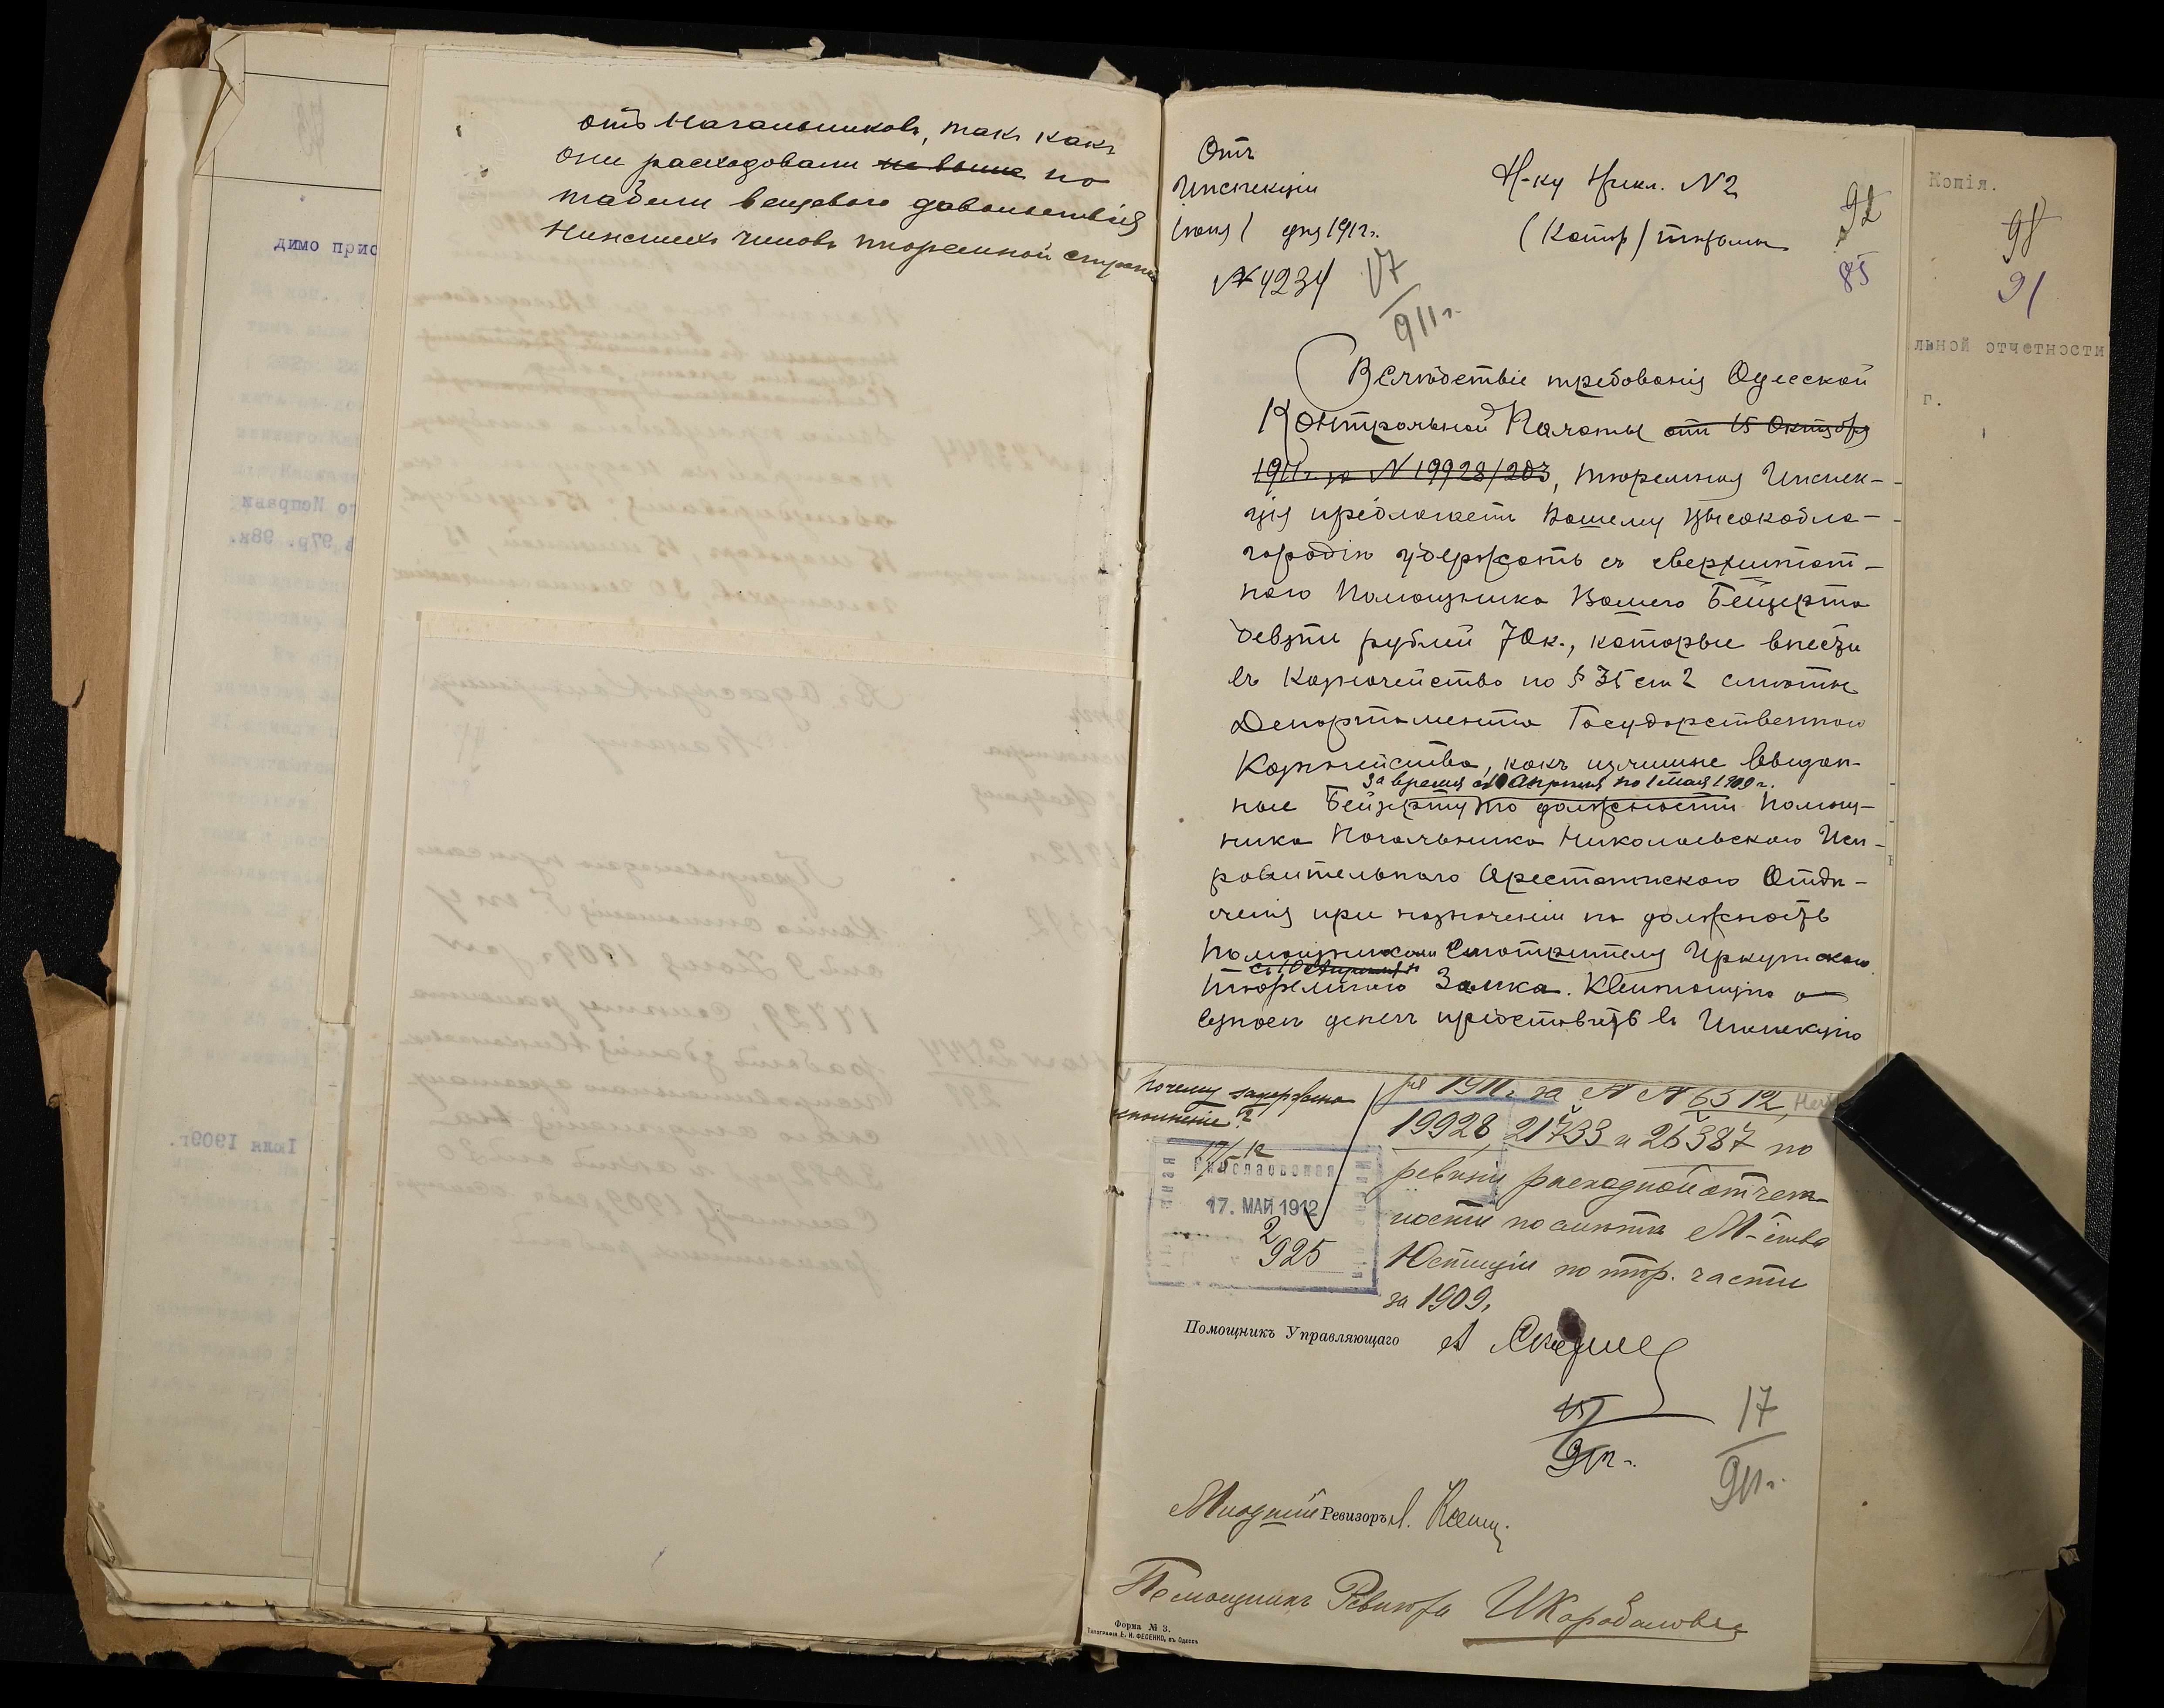 отъ Начальниковъ, такъ какъ
они расходовали не выше по
табели вещевого довольствія
нижнихъ чиновъ тюремной стражи
димо прис
Отъ
Инспекціи
іюня 1 дня 1912г.
№ 4234
17
911г.
Н-ку Никл. №2
(Катор) тюрьмы
92
85
Вслѣдствіе требованія Одесской
Контрольной Палаты отъ 15 Октября
1911г. за №19928/203, тюремная Инспек-
ція предлагаетъ Вашему Высокобла-
городію удержать съ сверхштат-
наго Помощника Вашего Бейцерта
девять рублей 70к., которые внести
въ Казначейство по § 35 ст 2 смѣты
Департамента Государственнаго
Казначейства, какъ излишне выдан-
за время съ 10 Апрѣля по 1 Мая 1909г.
ные Бейцерту по должности Помощ-
ника Начальника Николаевскаго Исп-
равительнаго Арестантскаго Отдѣ-
ленія при назначеніи на должность
Помощникомъ Смотрителя Иркутскаго
съ 10 Апрѣля
тюремнаго Замка. Квитанцію о
взносѣ денегъ представить въ Инспекцію
Почему задержано
исполненіе?
17/5 12
17. МАЙ 1912
2
925
ря 1911г. за №№ 6512,
19928, 21733 и 26387 по
ревизіи расходной отчет-
ности по смѣтѣ М-ства
Юстиціи по тюр. части
за 1909.
Помощникъ Управляющаго
17
911г.
Младшій Ревизоръ
Помощникъ Ревизора
Форма № 3.
Типографія Е. И. ФЕСЕНКО, въ Одессѣ
Копія.
98
91
льной отчетности
г.